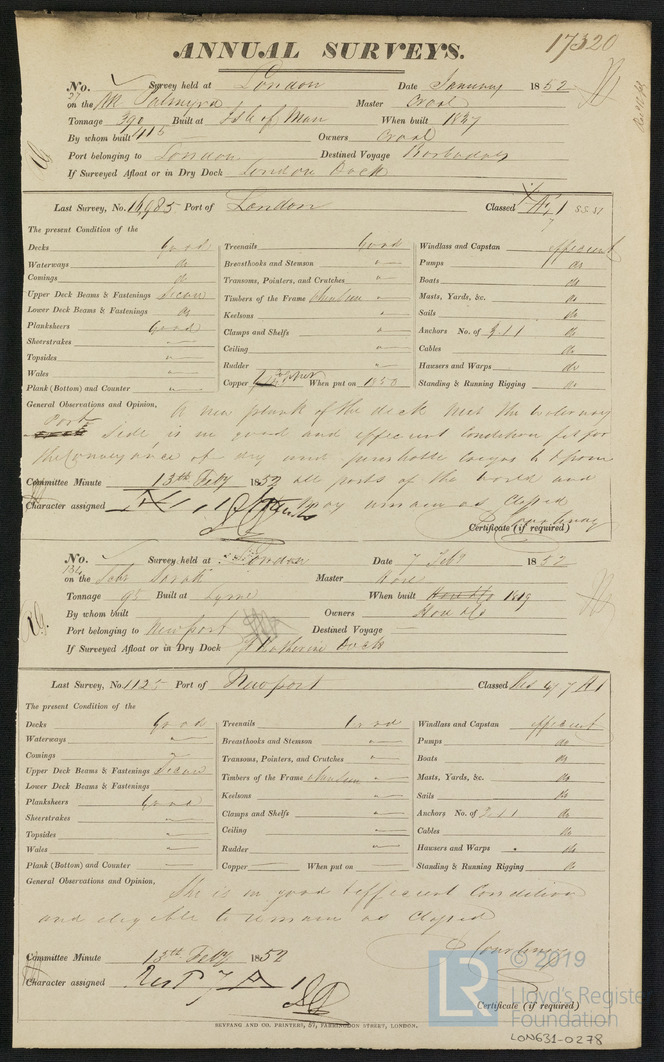 17320
ANNUAL SURVEYS.
No. 27 Survey held at London Date January 1852
on the Bk Palmyra Master
Tonnage 390 Built at Isle of Man When built 1827
415
By whom built Owners
Port belonging to London Destined Voyage Barbadoes
If Surveyed Afloat or in Dry Dock London Dock
Last Survey, No. 16985 Port of London Classed
The present Condition of the
Decks Good Treenails Good Windlass and Capstan efficient
Waterways do Breasthooks and Stemson Pumps do
Comings do Transoms, Pointers, and Crutches Boats do
Upper Deck Beams & Fastenings Timbers of the Frame when seen Masts, Yards, &c. do
Lower Deck Beams & Fastenings do Keelsons Sails do
Planksheers Good Clamps and Shelfs Anchors No. of 3.1.1 do
Sheerstrakes Ceiling Cables do
Topsides Rudder Hausers and Warps do
Wales Copper When put on 1850 Standing & Running Rigging do
Plank (Bottom) and Counter
General Observations and Opinion, A new plank of the deck next the waterway
Port side, is in good and efficient condition fit for
the conveyance of dry and perishable cargos to & from
Committee Minute 13th Feby 1852 all parts of the world and
Character assigned may remain as Classed
Certificate (if required)
No. Survey held at London Date 7 Feby 1852
on the Schr Sarah Master
Tonnage 95 Built at Lyme When built 1819
By whom built Owners
Port belonging to Newport Destined Voyage
If Surveyed Afloat or in Dry Dock St Katherine Dock
Last Survey, No. 1125 Port of Newport Classed
The present Condition of the
Decks Good Treenails Good Windlass and Capstan efficient
Waterways Breasthooks and Stemson Pumps do
Comings Transoms, Pointers, and Crutches Boats do
Upper Deck Beams & Fastenings Timbers of the Frame when seen Masts, Yards, &c. do
Lower Deck Beams & Fastenings Keelsons Sails do
Planksheers Good Clamps and Shelfs Anchors No. of 2.1.1 do
Sheerstrakes Ceiling Cables do
Topsides Rudder Hausers and Warps do
Wales Copper When put on Standing & Running Rigging do
Plank (Bottom) and Counter
General Observations and Opinion, She is in good & efficient Condition
and eligible to remain as Classed
Committee Minute 13th Feby 1852
Character assigned
Certificate (if required)
SEYFANG AND CO. PRINTERS, 57, FARRINGDON STREET, LONDON.
LR
© 2019
Lloyd's Register
Foundation
LON631-0278